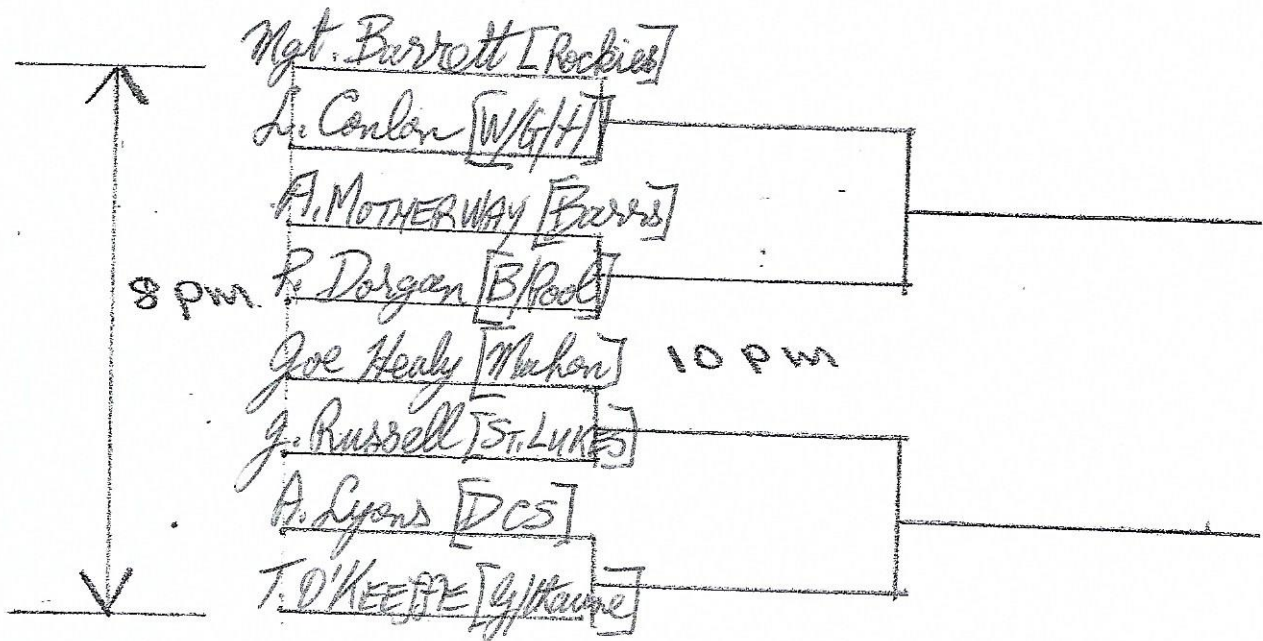 Mgt. Barrett [Rockies]
L. Conlon [W/G/H]
A. MOTHERWAY [Barrs]
8 pm. R. Dorgan [B/Pool]
Joe Healy [Mahon] 10 pm
J. Russell [ST. LUKES]
A. Lyons [DCS]
T. O'KEEFFE